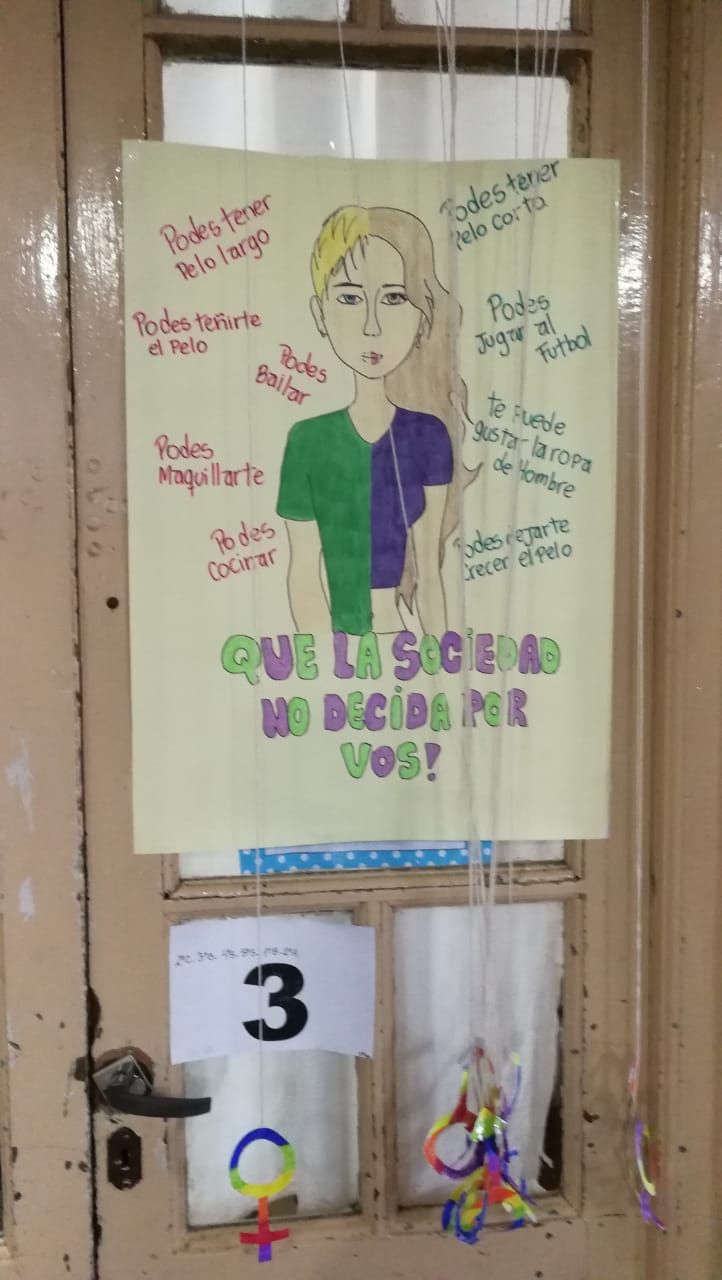 Podes tener
Pelo largo
Podes teñirte
el Pelo
Podes
Bailar
Podes
Maquillarte
Podes
cocinar
Podes tener
Pelo corto
Podes
Jugar al
Futbol
te Puede
gustar la ropa
de Hombre
Podes dejarte
Crecer el Pelo
QUE LA SOCIEDAD
NO DECIDA POR
VOS!
3